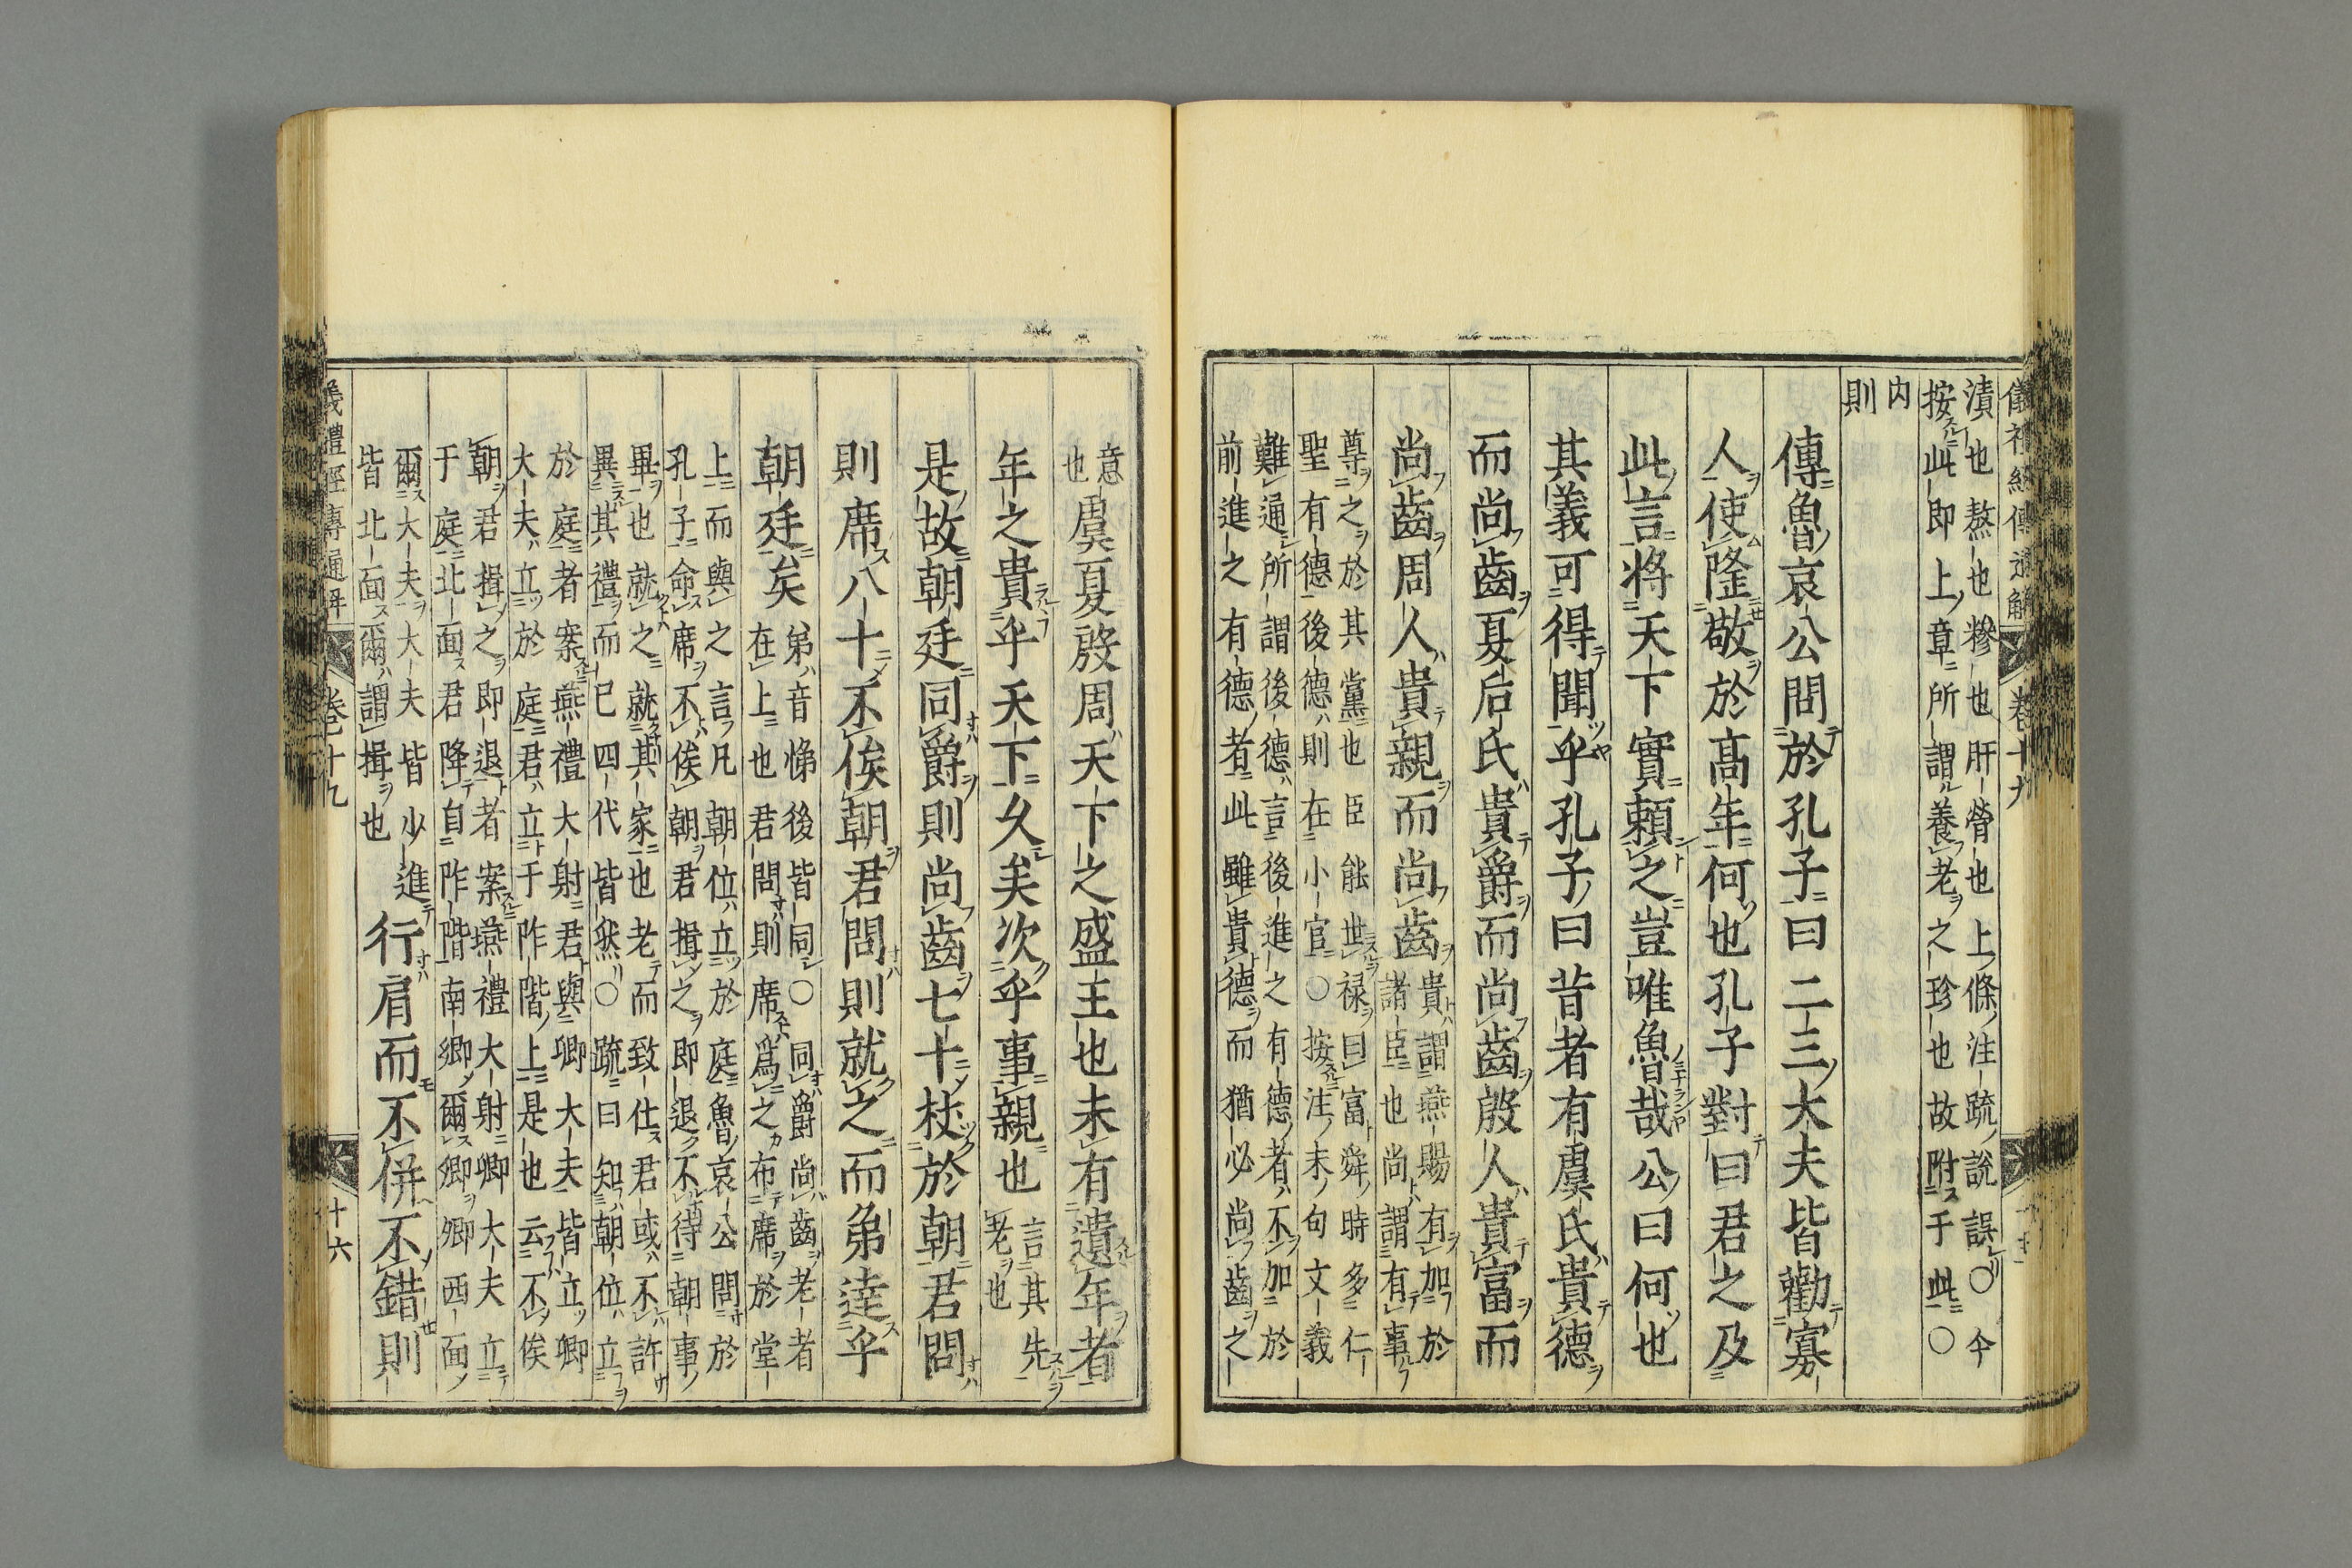 儀禮經傳通解 卷十九
漬也熬也糝也肝膋也上條注疏說誤○今
按此即上章所謂養老之珍也故附于此○
内
則
傳魯哀公問於孔子曰二三大夫皆勸寡
人使隆敬於高年何也孔子對曰君之及
此言將天下實賴之豈唯魯哉公曰何也
其義可得聞乎孔子曰昔者有虞氏貴德
而尚齒夏后氏貴爵而尚齒殷人貴富而
尚齒周人貴親而尚齒
貴謂燕賜有加於
諸臣也尚謂有事
尊之於其黨也臣能世禄曰富舜時多仁
聖有德後德則在小官○按注未句文義
難通所謂後德言後進之有德者不加於
前進之有德者此雖貴德而猶必尚齒之
意
也
虞夏殷周天下之盛王也未有遺年者
年之貴乎天下久矣次乎事親也
言其先
老也
是故朝廷同爵則尚齒七十杖於朝君問
則席八十不俟朝君問則就之而弟達乎
朝廷矣
弟音悌後皆同○同爵尚齒老者
在上也君問則席爲之布席於堂
上而與之言凡朝位立於庭魯哀公問於
孔子命席不俟朝君揖之即退不待朝事
畢也就之就其家也老而致仕君或不許
異其禮而已四代皆然○疏曰知朝位立
於庭者案燕禮大射君與卿大夫皆立卿
大夫立於庭君立于阼階上是也云不俟
朝君揖之即退者案燕禮大射卿大夫立
于庭北面君降自阼階南卿爾卿卿西面
爾大夫大夫皆少進
皆北面爾謂揖也
行肩而不併不錯則
儀禮經傳通解 卷十九 十六